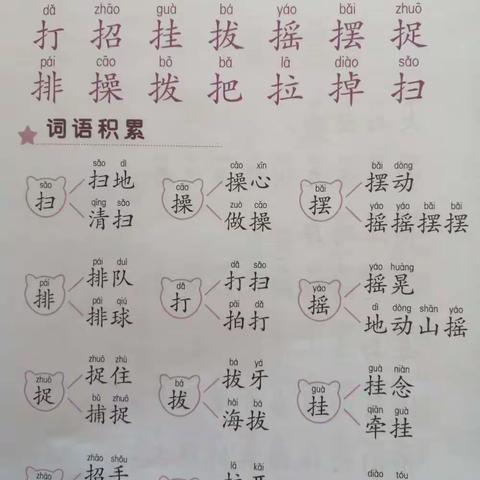 dǎ zhāo guà bá yáo bǎi zhuō
打 招 挂 拔 摇 摆 捉
pái cāo bō bǎ lā diào sǎo
排 操 拨 把 拉 掉 扫
词语积累
sǎo dì cāo xīn bǎi dòng
扫地 操心 摆动
sǎo cāo bǎi
扫 操 摆
qīng sǎo zuò cāo yáo yáo bǎi bǎi
清扫 做操 摇摇摆摆
pái duì dǎ sǎo yáo huàng
排队 打扫 摇晃
pái dǎ yáo
排 打 摇
pái qiú pāi dǎ dì dòng shān yáo
排球 拍打 地动山摇
zhuō zhù bá yá guà niàn
捉住 拔牙 挂念
zhuō bá guà
捉 拔 挂
bǔ zhuō hǎi bá qiān guà
捕捉 海拔 牵挂
zhāo shǒu lā kāi diào tóu
招手